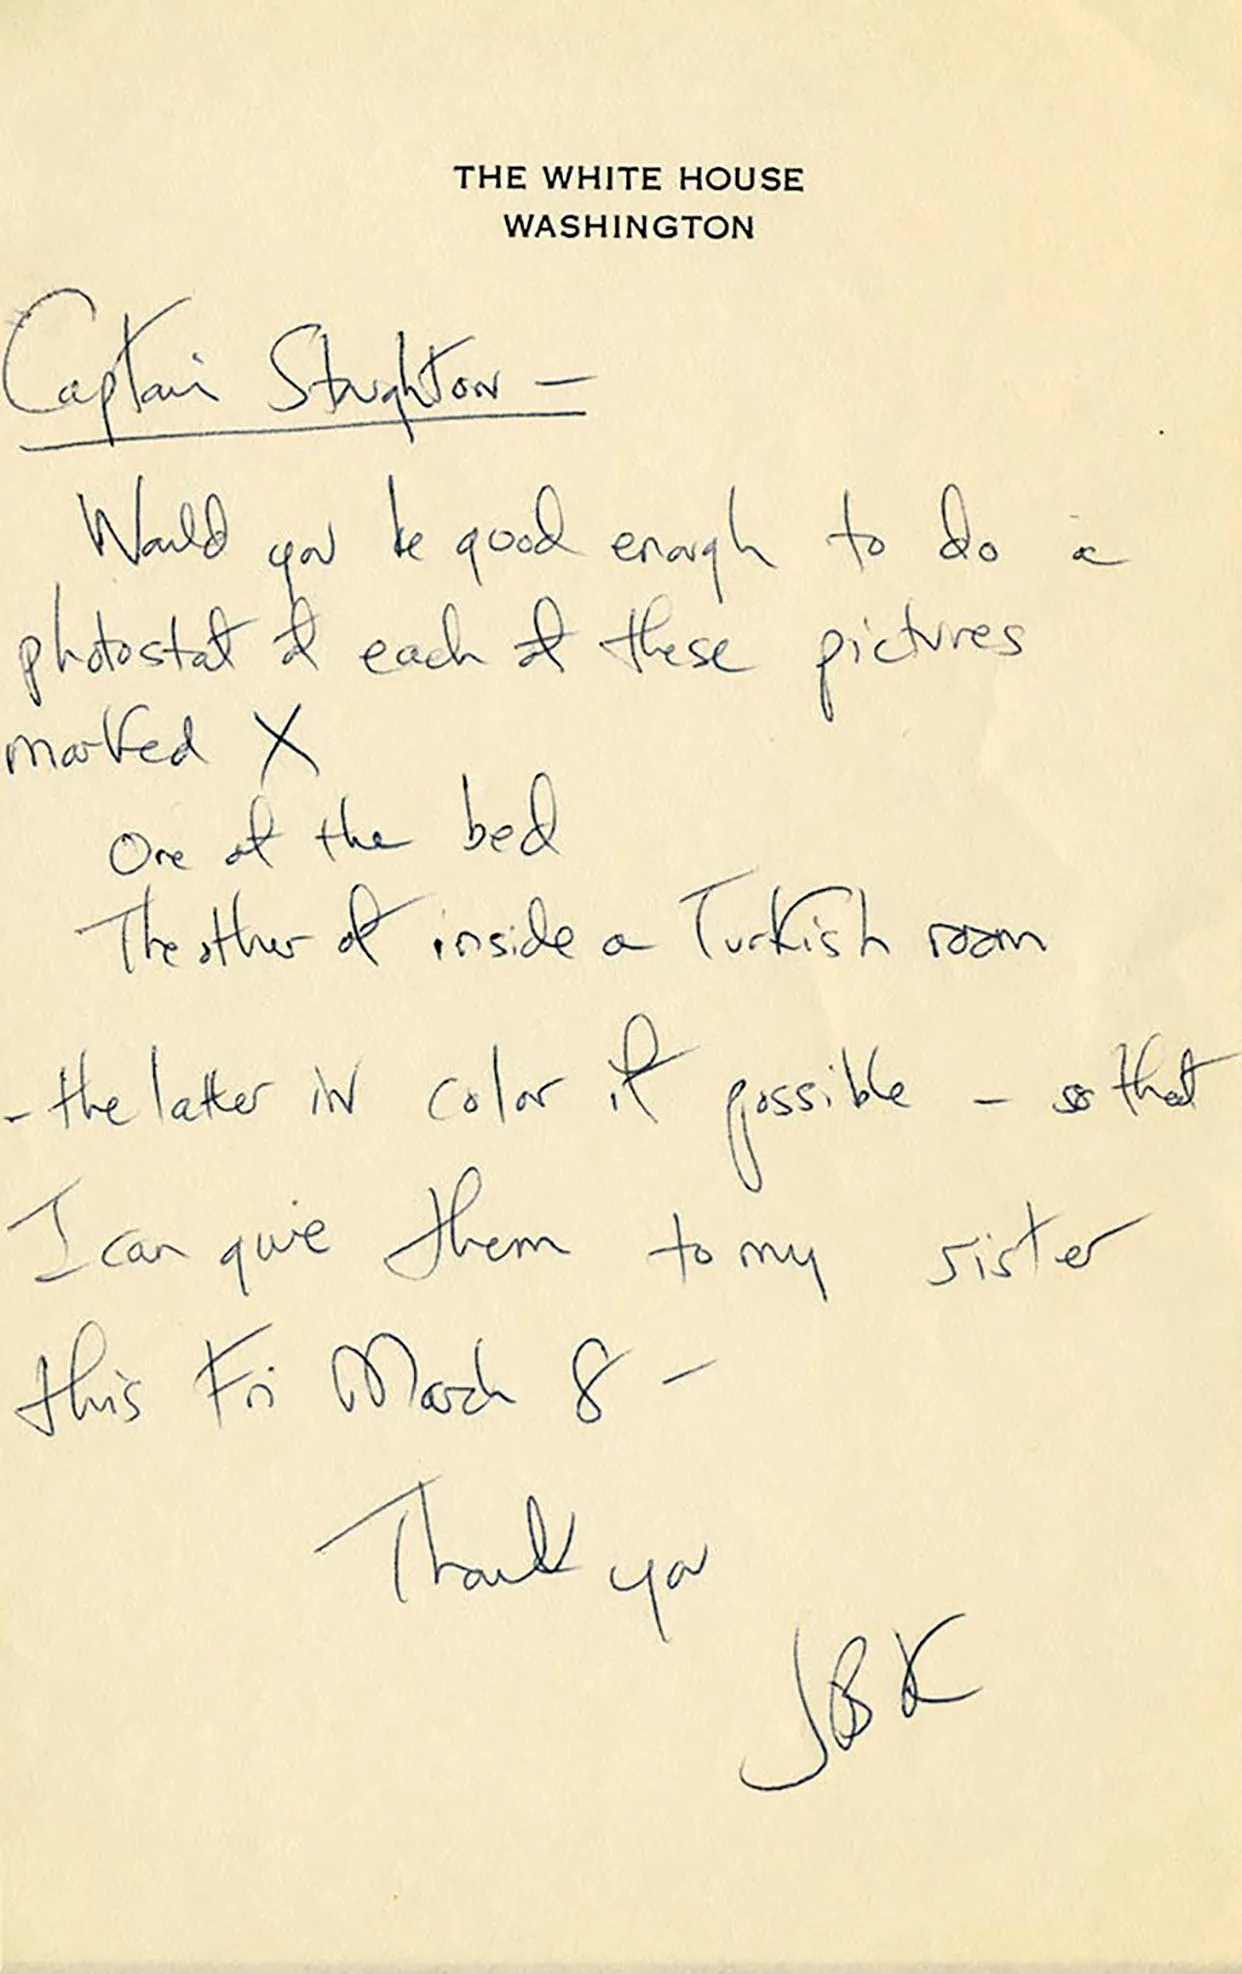 THE WHITE HOUSE
WASHINGTON
Captain Stoughton —
Would you be good enough to do a
photostat of each of these pictures
marked X
One of the bed
The other of inside a Turkish room
- the latter in color if possible - so that
I can give them to my sister
this Fri March 8 -
Thank you
JBK